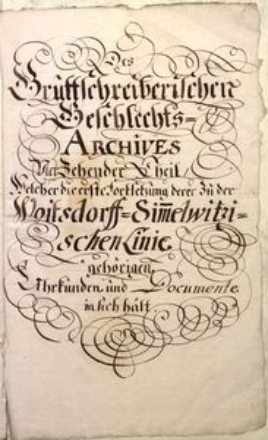 Des
Grüttschreiberischen
Geschlechts=
ARCHIVES
Vier Zehender Theil
Welcher die erste Fortsetzung derer Zu der
Woitsdorff=Sim̅elwitzi=
schen Linie
gehörigen
Uhrkunden und Documente
in sich hält